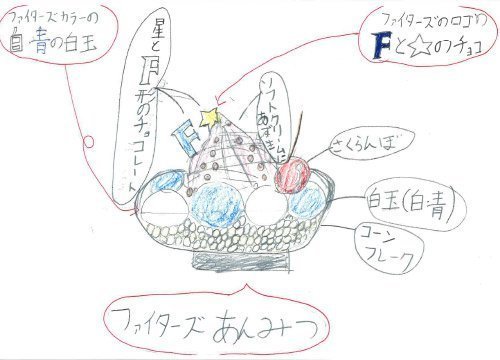 ファイターズカラーの
白青の白玉
星と
F形のチョコレート
ソフトクリームに
あずき
ファイターズのロゴの
Fと☆のチョコ
F
さくらんぼ
白玉(白・青)
コーン
フレーク
ファイターズあんみつ